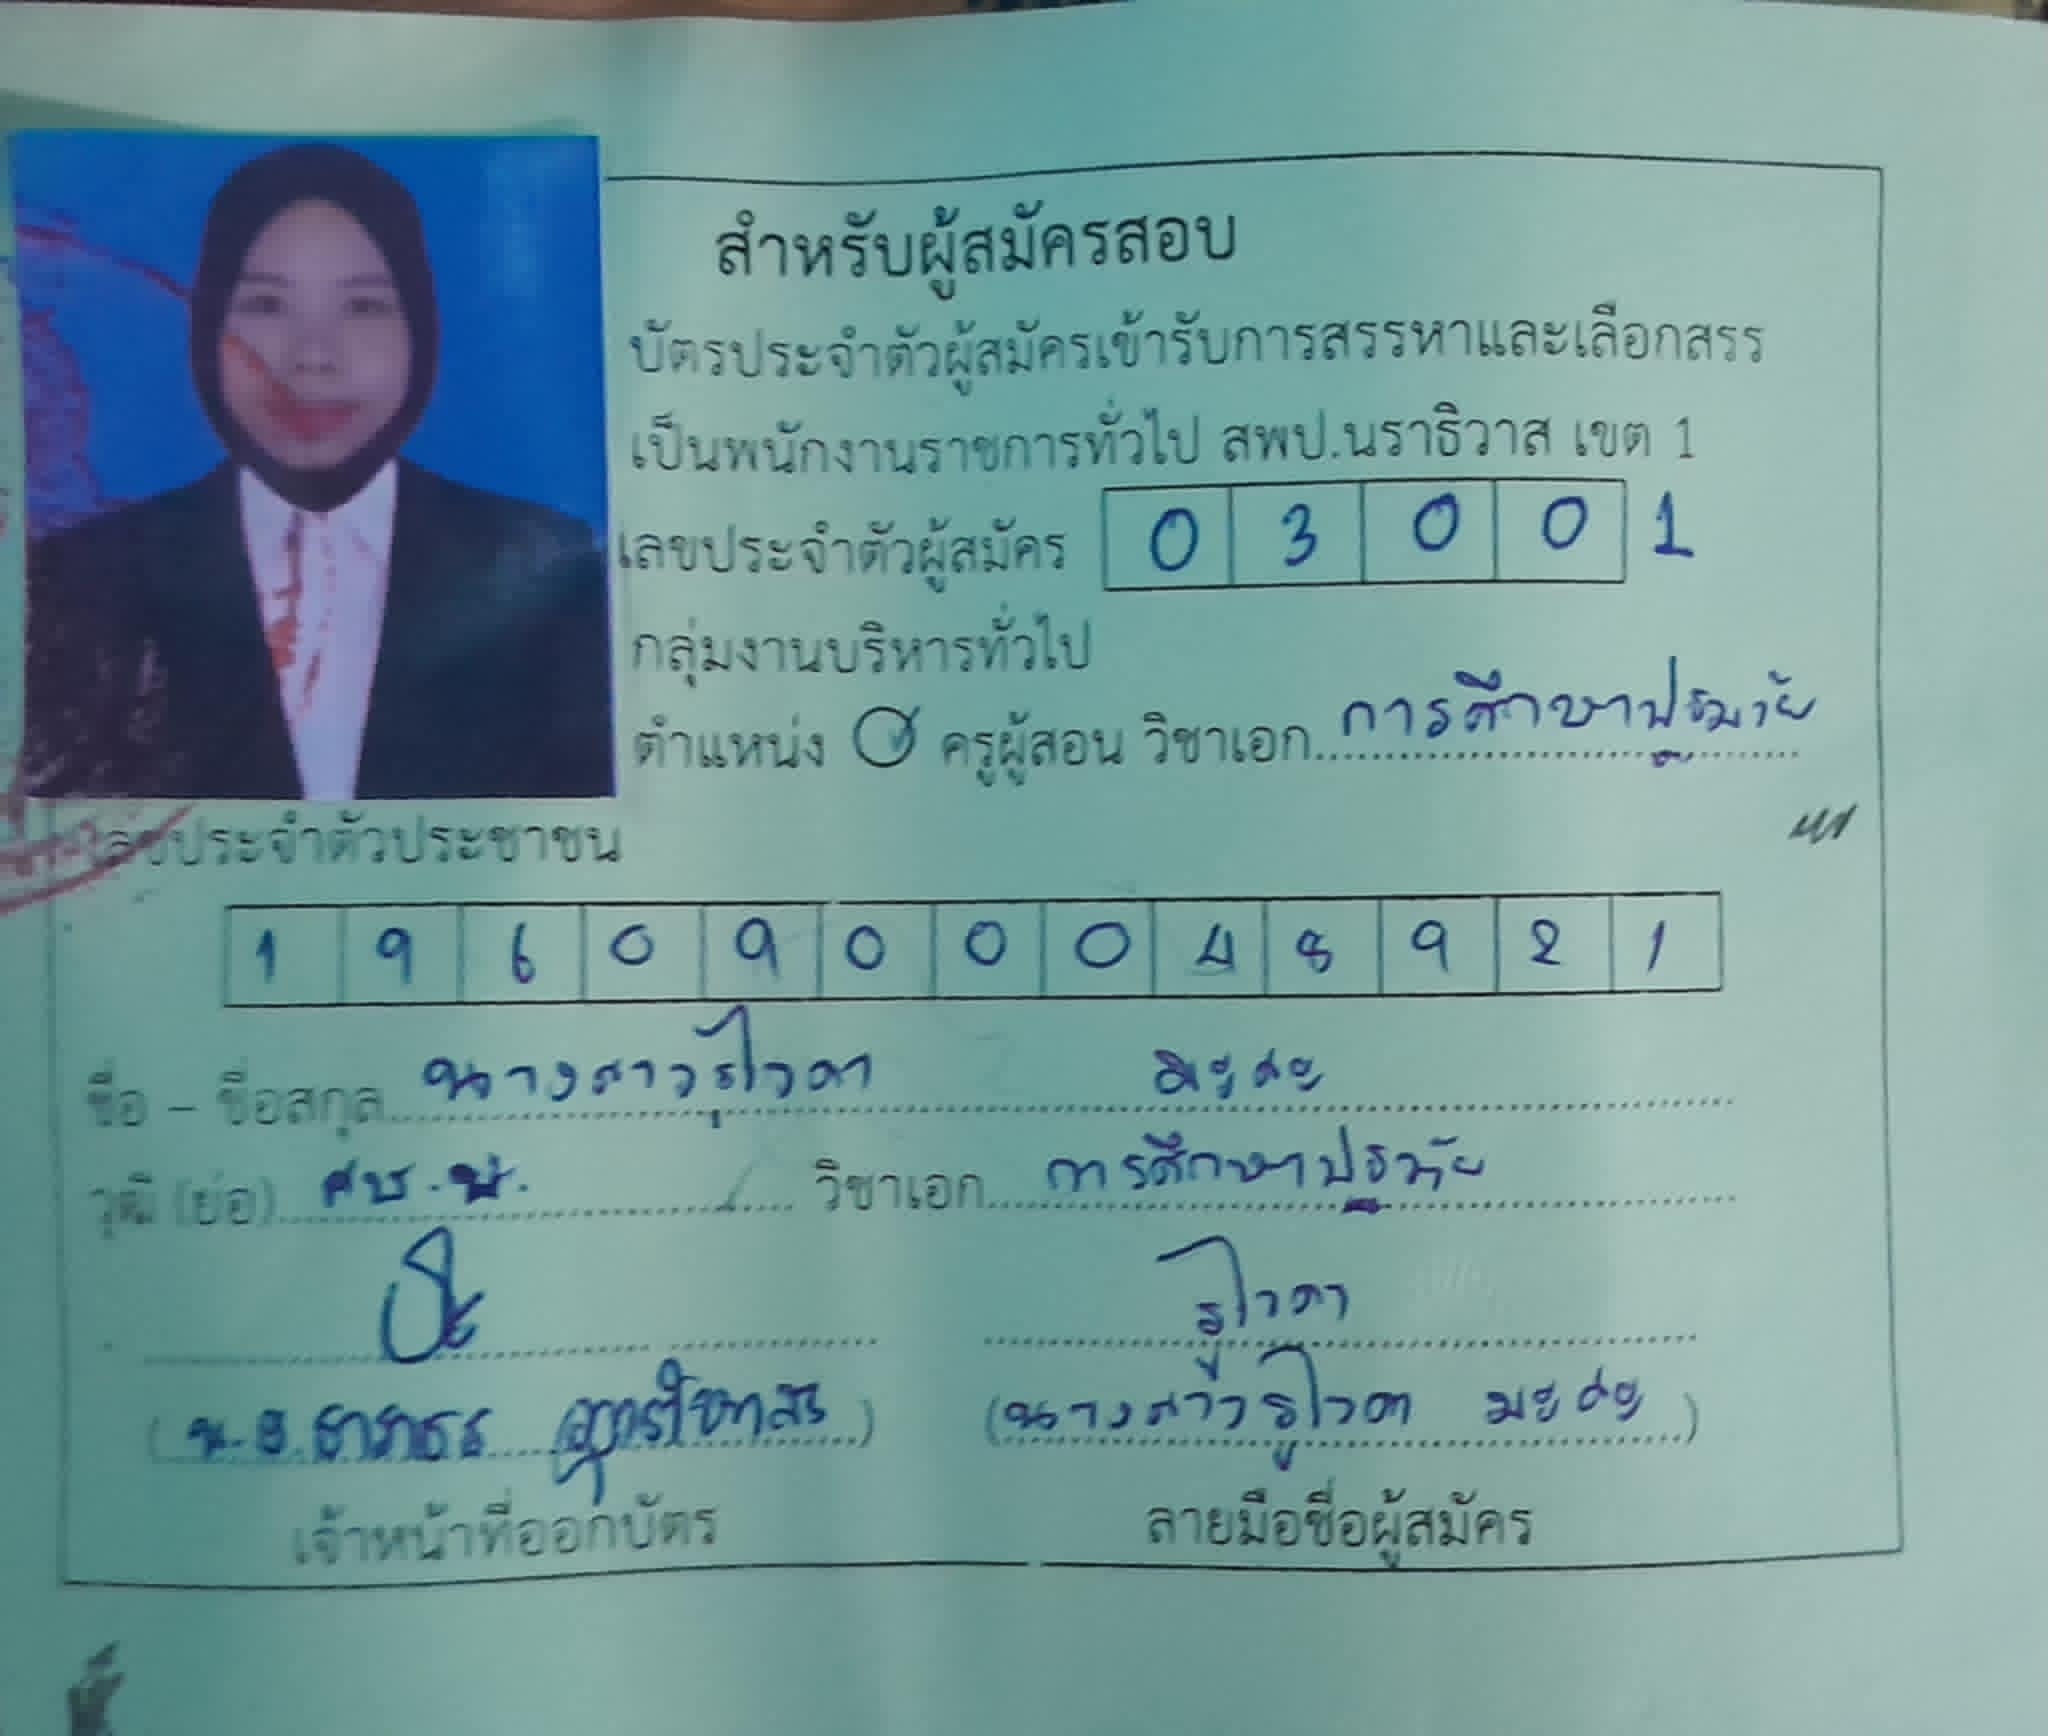 สำหรับผู้สมัครสอบ
บัตรประจำตัวผู้สมัครเข้ารับการสรรหาและเลือกสรร
เป็นพนักงานราชการทั่วไป สพป.นราธิวาส เขต 1
เลขประจำตัวผู้สมัคร 0 3 0 0 1
กลุ่มงานบริหารทั่วไป
ตำแหน่ง ครูผู้สอน วิชาเอก การศึกษาปฐมวัย
เลขประจำตัวประชาชน
1 9 6 0 9 0 0 0 4 8 9 2 1
ชื่อ – ชื่อสกุล นางสาวรูไวดา มะดะ
วุฒิ (ย่อ) ศษ.บ. วิชาเอก การศึกษาปฐมวัย
รูไวดา
(นางสาวรูไวดา มะดะ)
เจ้าหน้าที่ออกบัตร ลายมือชื่อผู้สมัคร